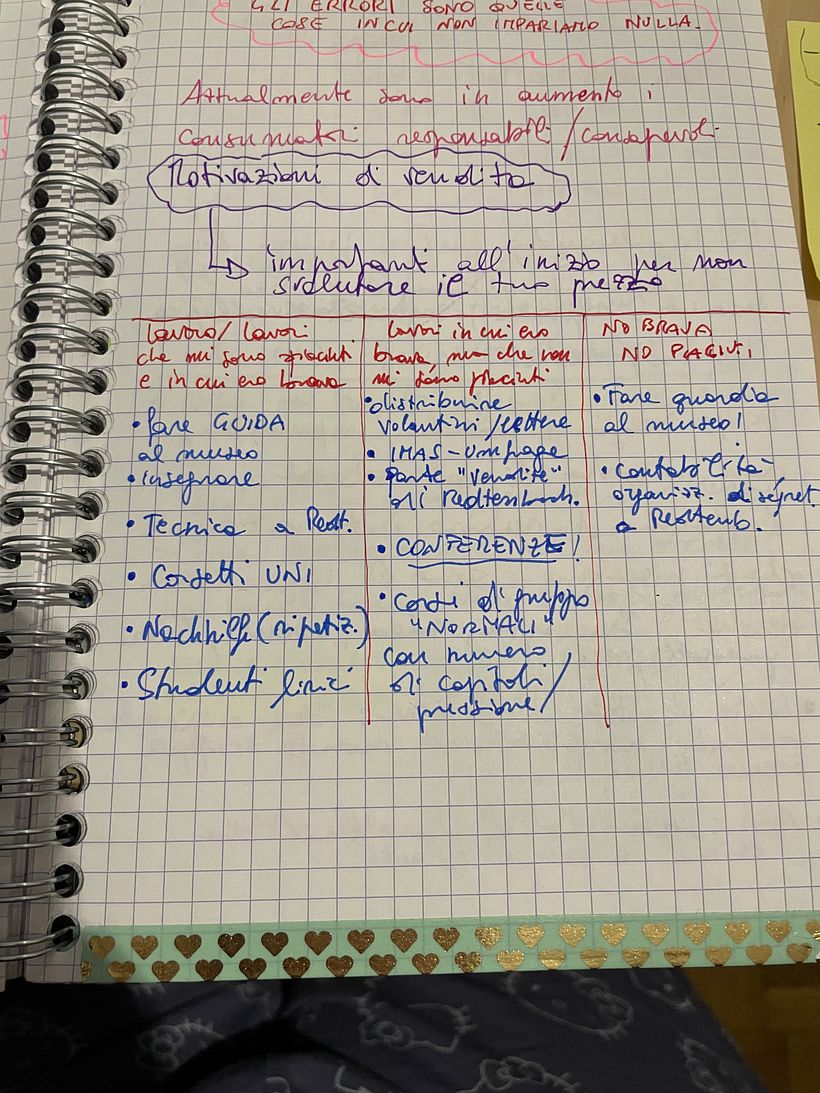 GLI ERRORI SONO QUELLE
COSE IN CUI NON IMPARIAMO NULLA.
Attualmente sono in aumento i
consumatori responsabili/consapevoli
Motivazioni di vendita
importanti all'inizio per non
svalutare il tuo prezzo
lavoro/lavori
che mi sono piaciuti
e in cui ero brava
• fare GUIDA
al museo
• insegnare
• Tecnica a Redt.
• Corsetti UNI
• Nachhilfe (ripetiz.)
• Studenti lirici
lavori in cui ero
brava ma che non
mi sono piaciuti
• distribuire
volantini/lettere
• IMAS-Umfrage
• Parte "vendite"
di Redtenbach.
• CONFERENZE!
• Corsi di gruppo
"NORMALI"
con numero
di capitoli/
pressione/
NO BRAVA
NO PIACIUTI
• Fare guardia
al museo!
• contabilità-
organizz. di segret.
a Redtenb.